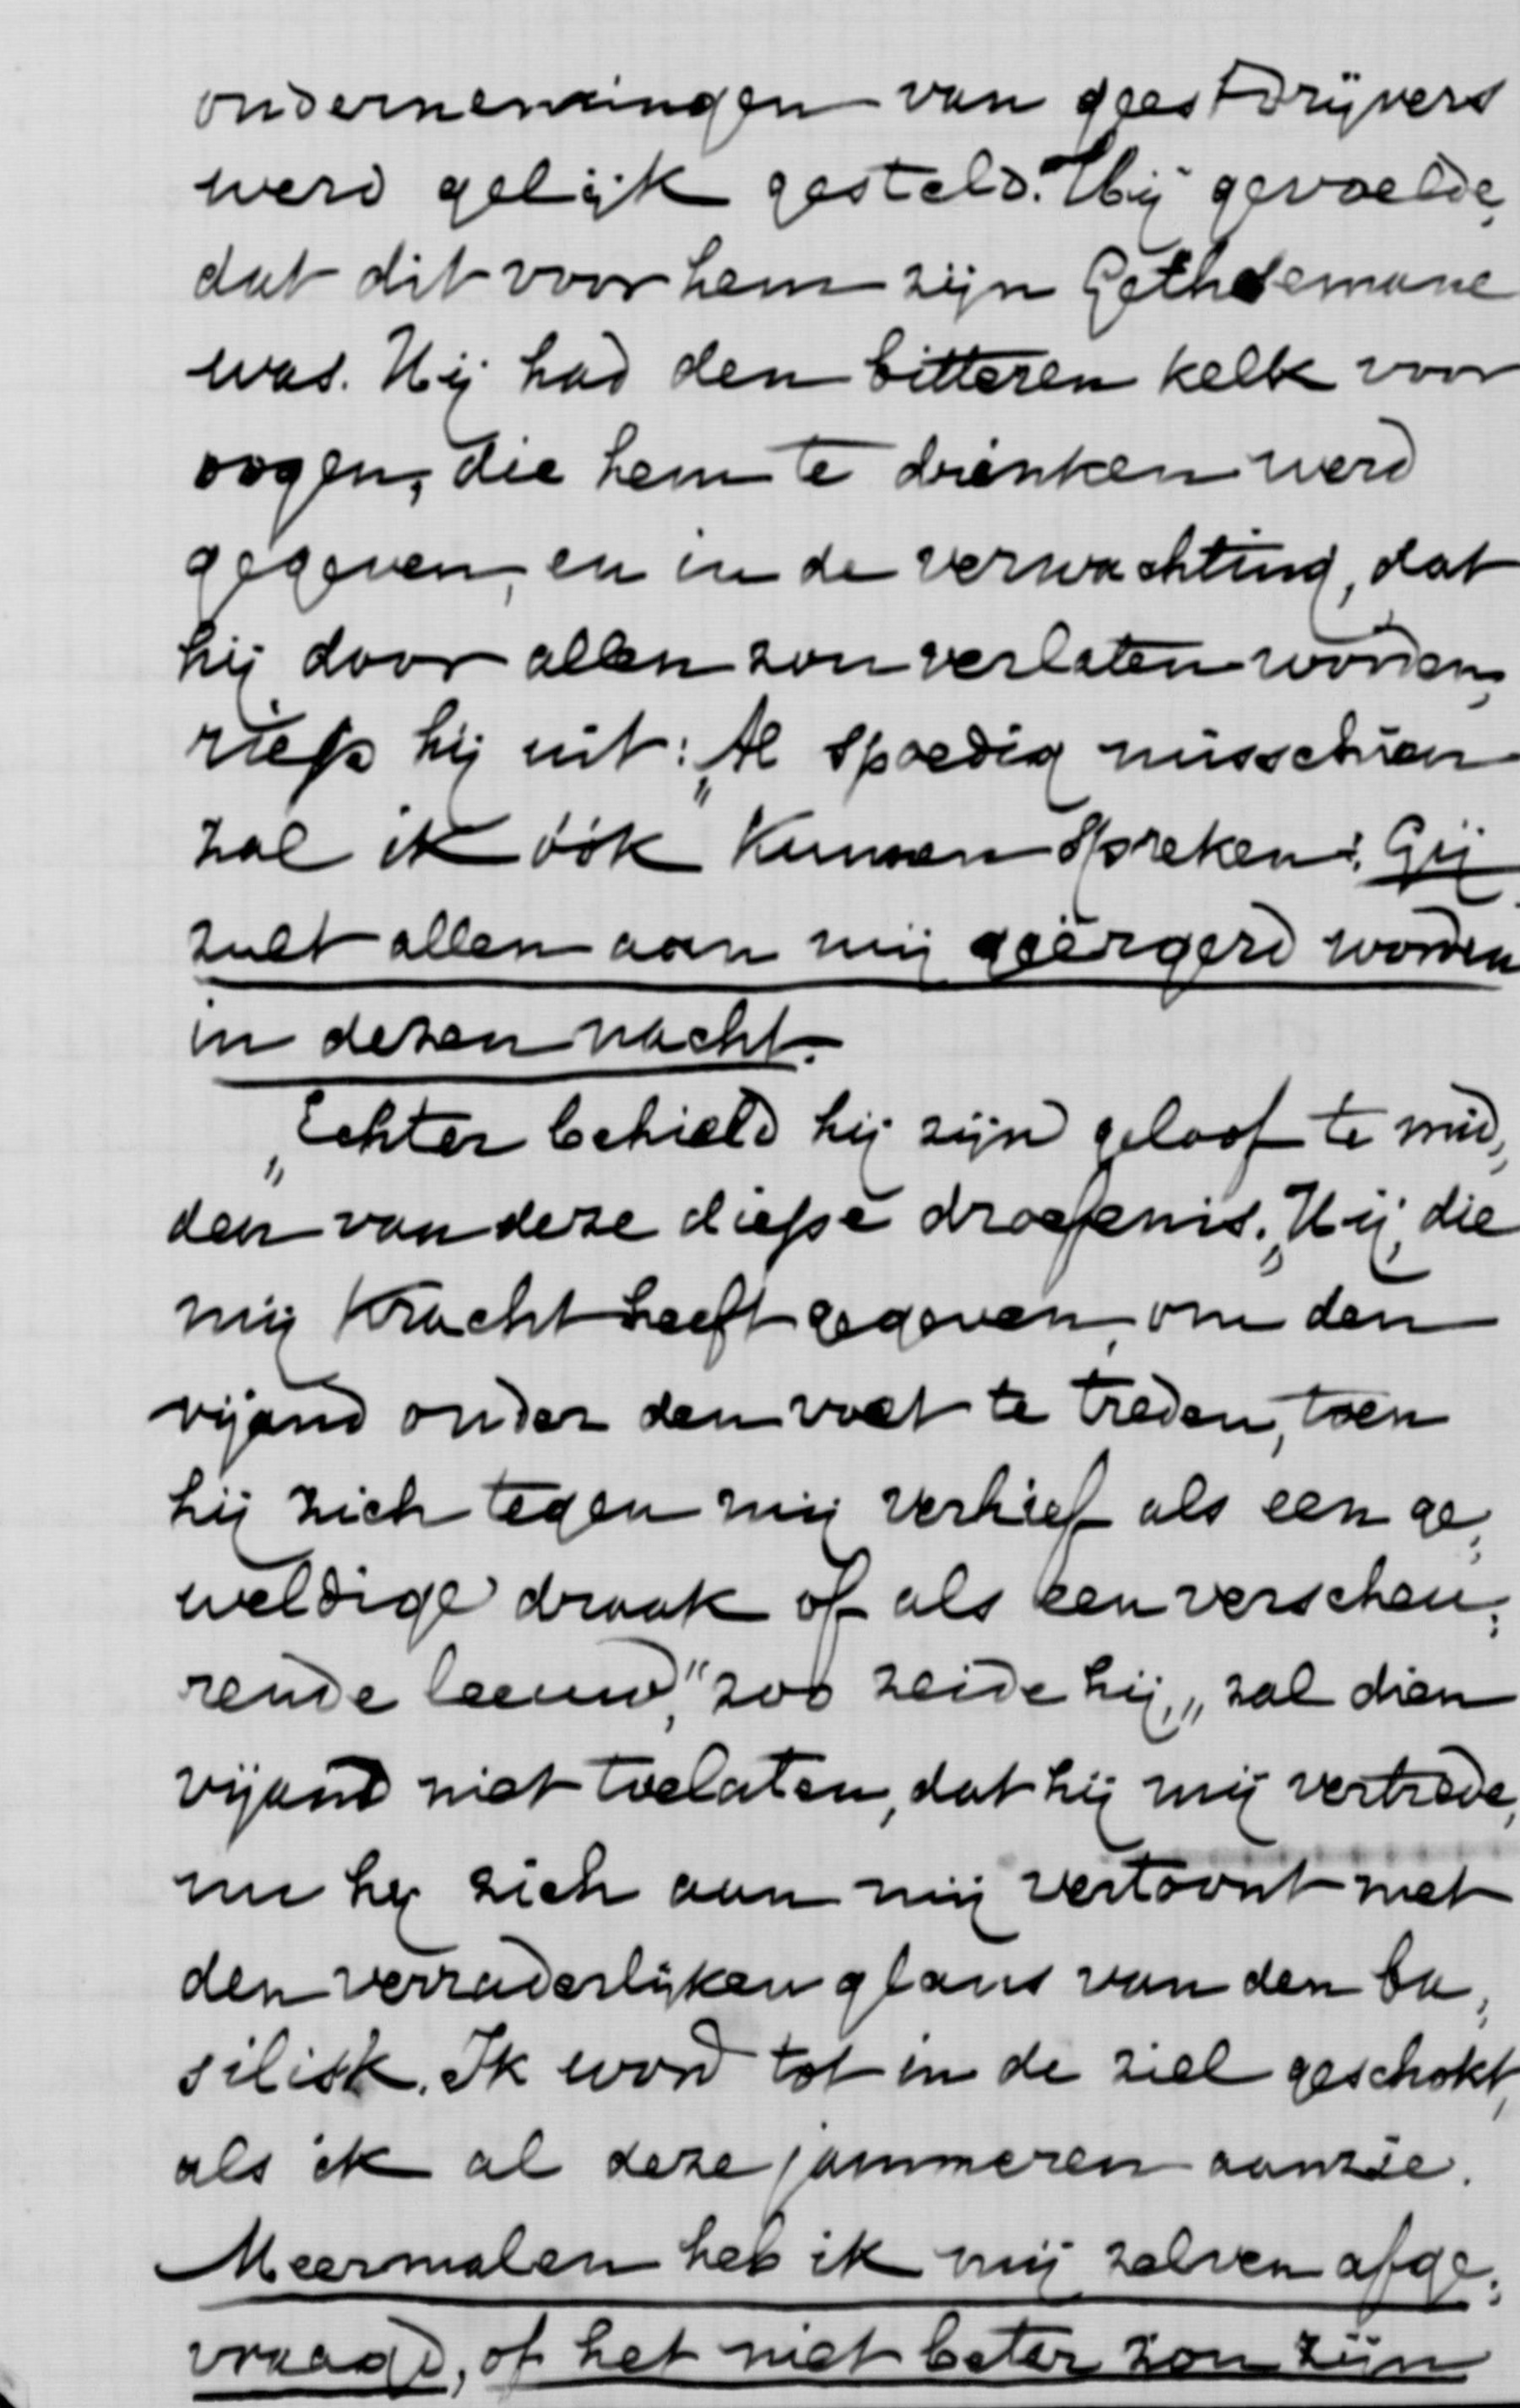 ondernemingen van geestdrijvers
werd gelijk gesteld." Hij gevoelde,
dat dit voor hem zijn Gethsemane
was. Hij had den bitteren kelk voor
oogen, die hem te drinken werd
gegeven, en in de verwachting, dat
hij door allen zou verlaten worden,
riep hij uit: „Al spoedig misschien
zal ik óók kunnen spreken: Gij
zult allen aan mij geërgerd worden
in dezen nacht.
„Echter behield hij zijn geloof te mid„
den van deze diepe droefenis. „Hij, die
mij kracht heeft gegeven, om den
vijand onder den voet te treden, toen
hij zich tegen mij verhief als een ge„
weldige draak of als een verscheu„
rende leeuw," zoo zeide hij, „zal dien
vijand niet toelaten, dat hij mij vertrede,
nu hij zich aan mij vertoont met
den verraderlijken glans van den ba„
silisk. Ik word tot in de ziel geschokt,
als ik al deze jammeren aanzie.
Meermalen heb ik mij zelven afge„
vraagd, of het niet beter zou zijn